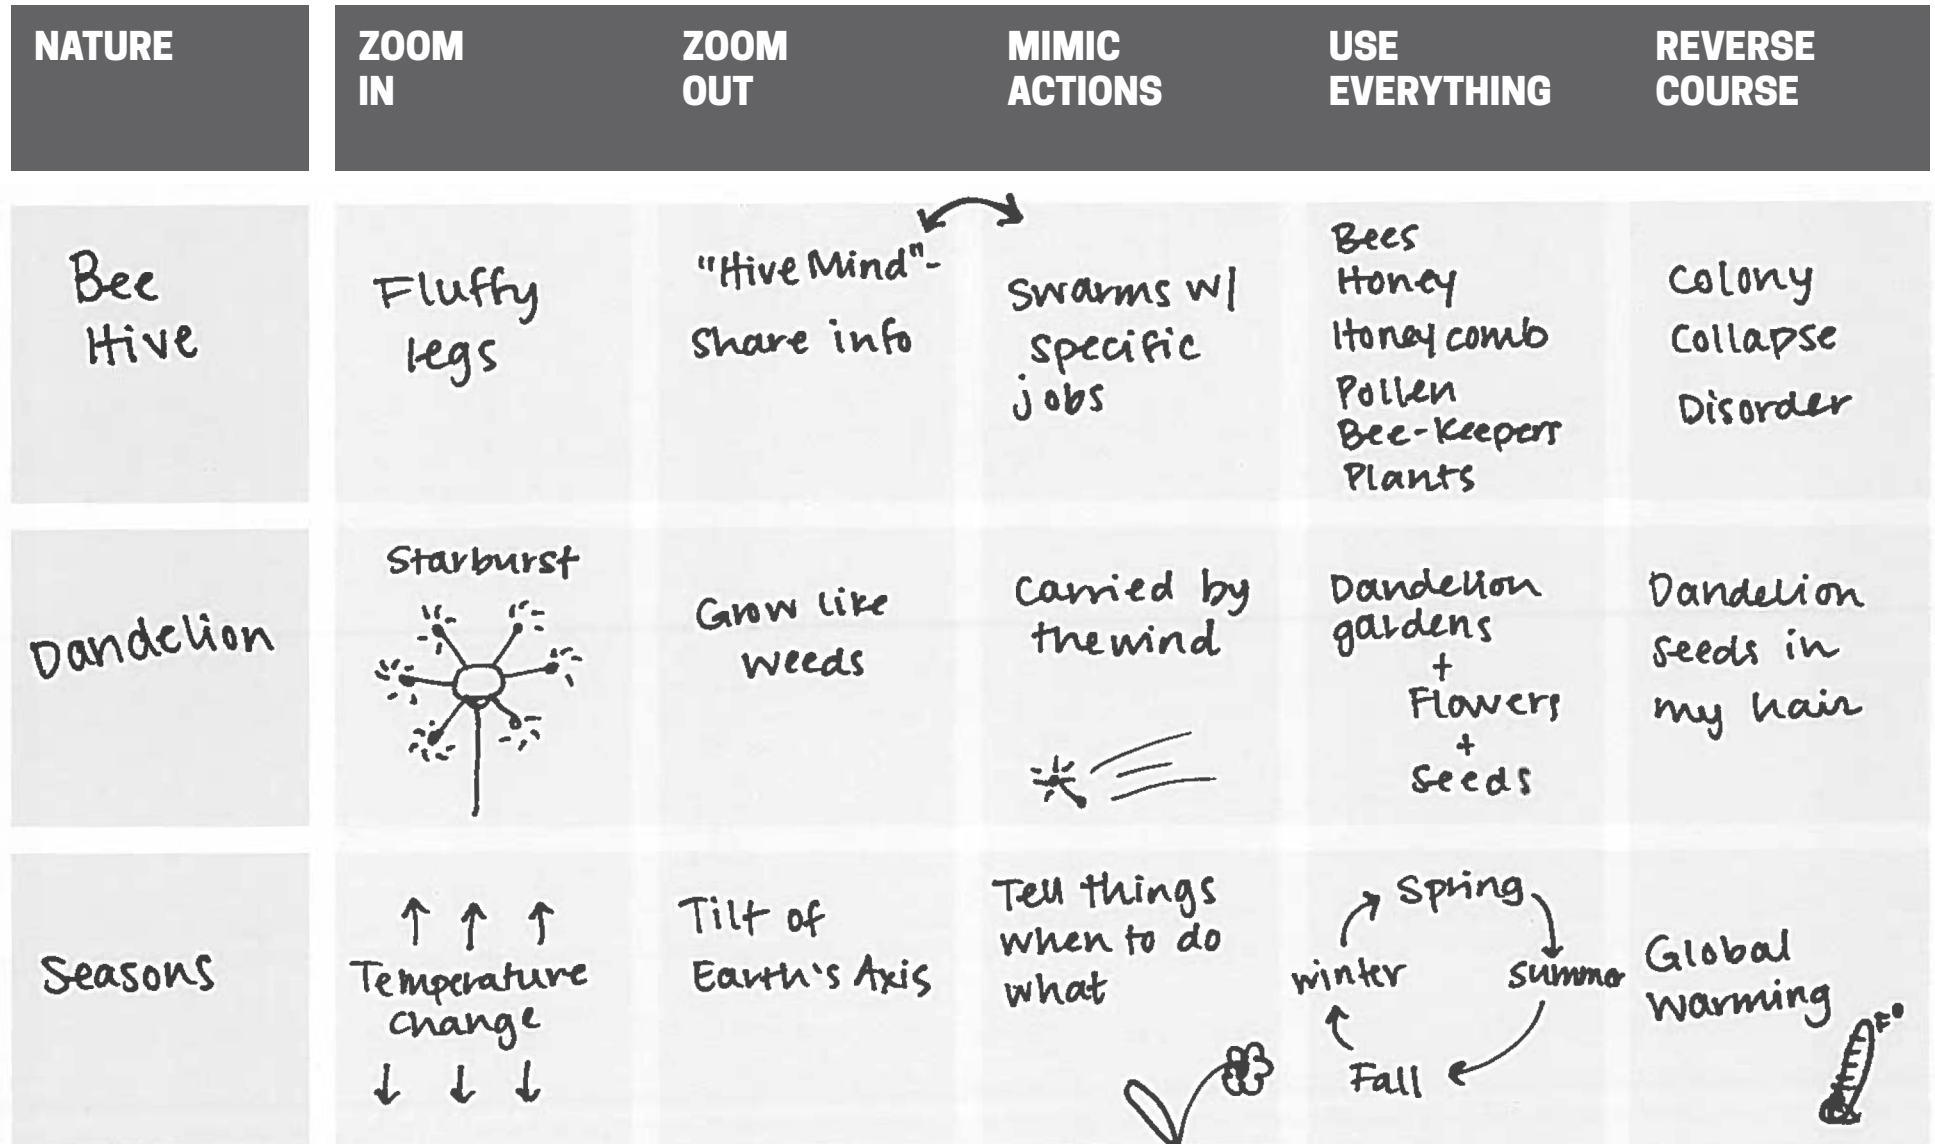 NATURE
ZOOM
IN
ZOOM
OUT
MIMIC
ACTIONS
USE
EVERYTHING
REVERSE
COURSE
Bee
Hive
Fluffy
legs
"Hive Mind"-
share info
Swarms w/
specific
jobs
Bees
Honey
Honeycomb
Pollen
Bee-Keepers
Plants
Colony
Collapse
Disorder
Dandelion
Starburst
Grow like
weeds
Carried by
the wind
Dandelion
gardens
+
Flowers
+
Seeds
Dandelion
seeds in
my hair
Seasons
Temperature
change
Tilt of
Earth's Axis
Tell things
when to do
what
Spring
winter
summer
Fall
Global
warming
F°